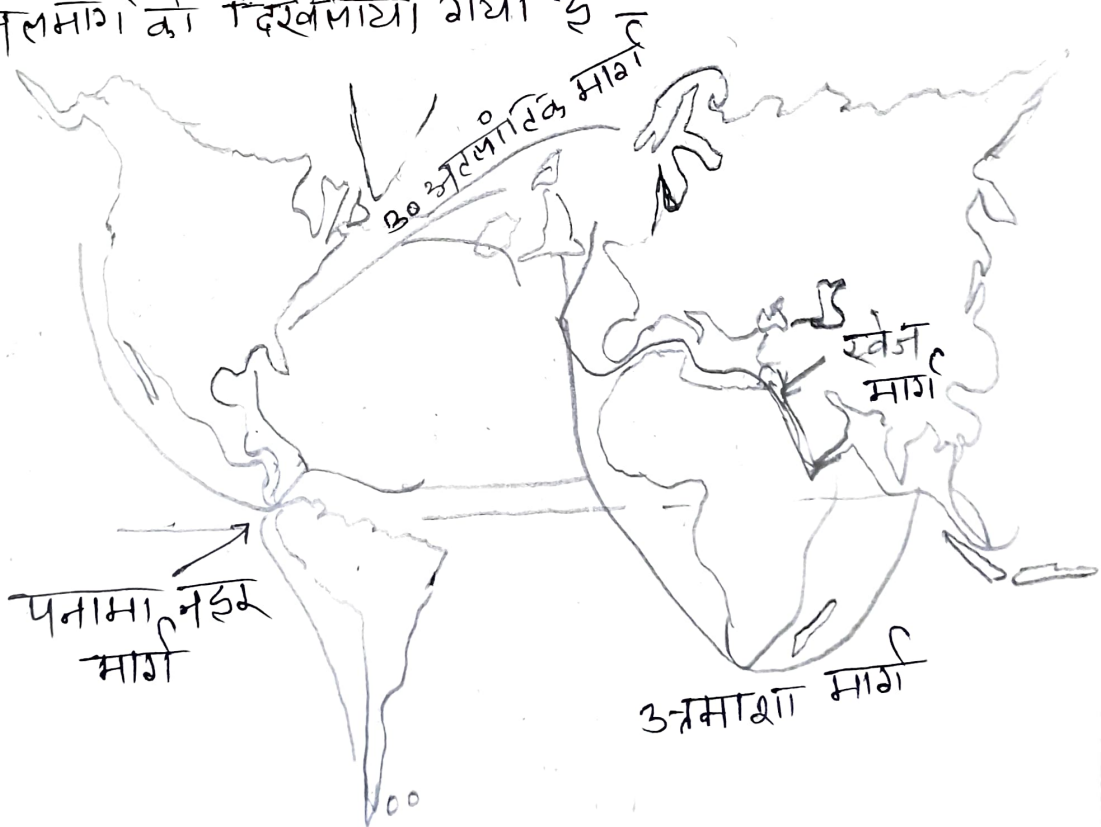 जलमार्ग को दिखलाया गया है
उ० अटलांटिक मार्ग
स्वेज
मार्ग
पनामा नहर
मार्ग
उत्तमाशा मार्ग